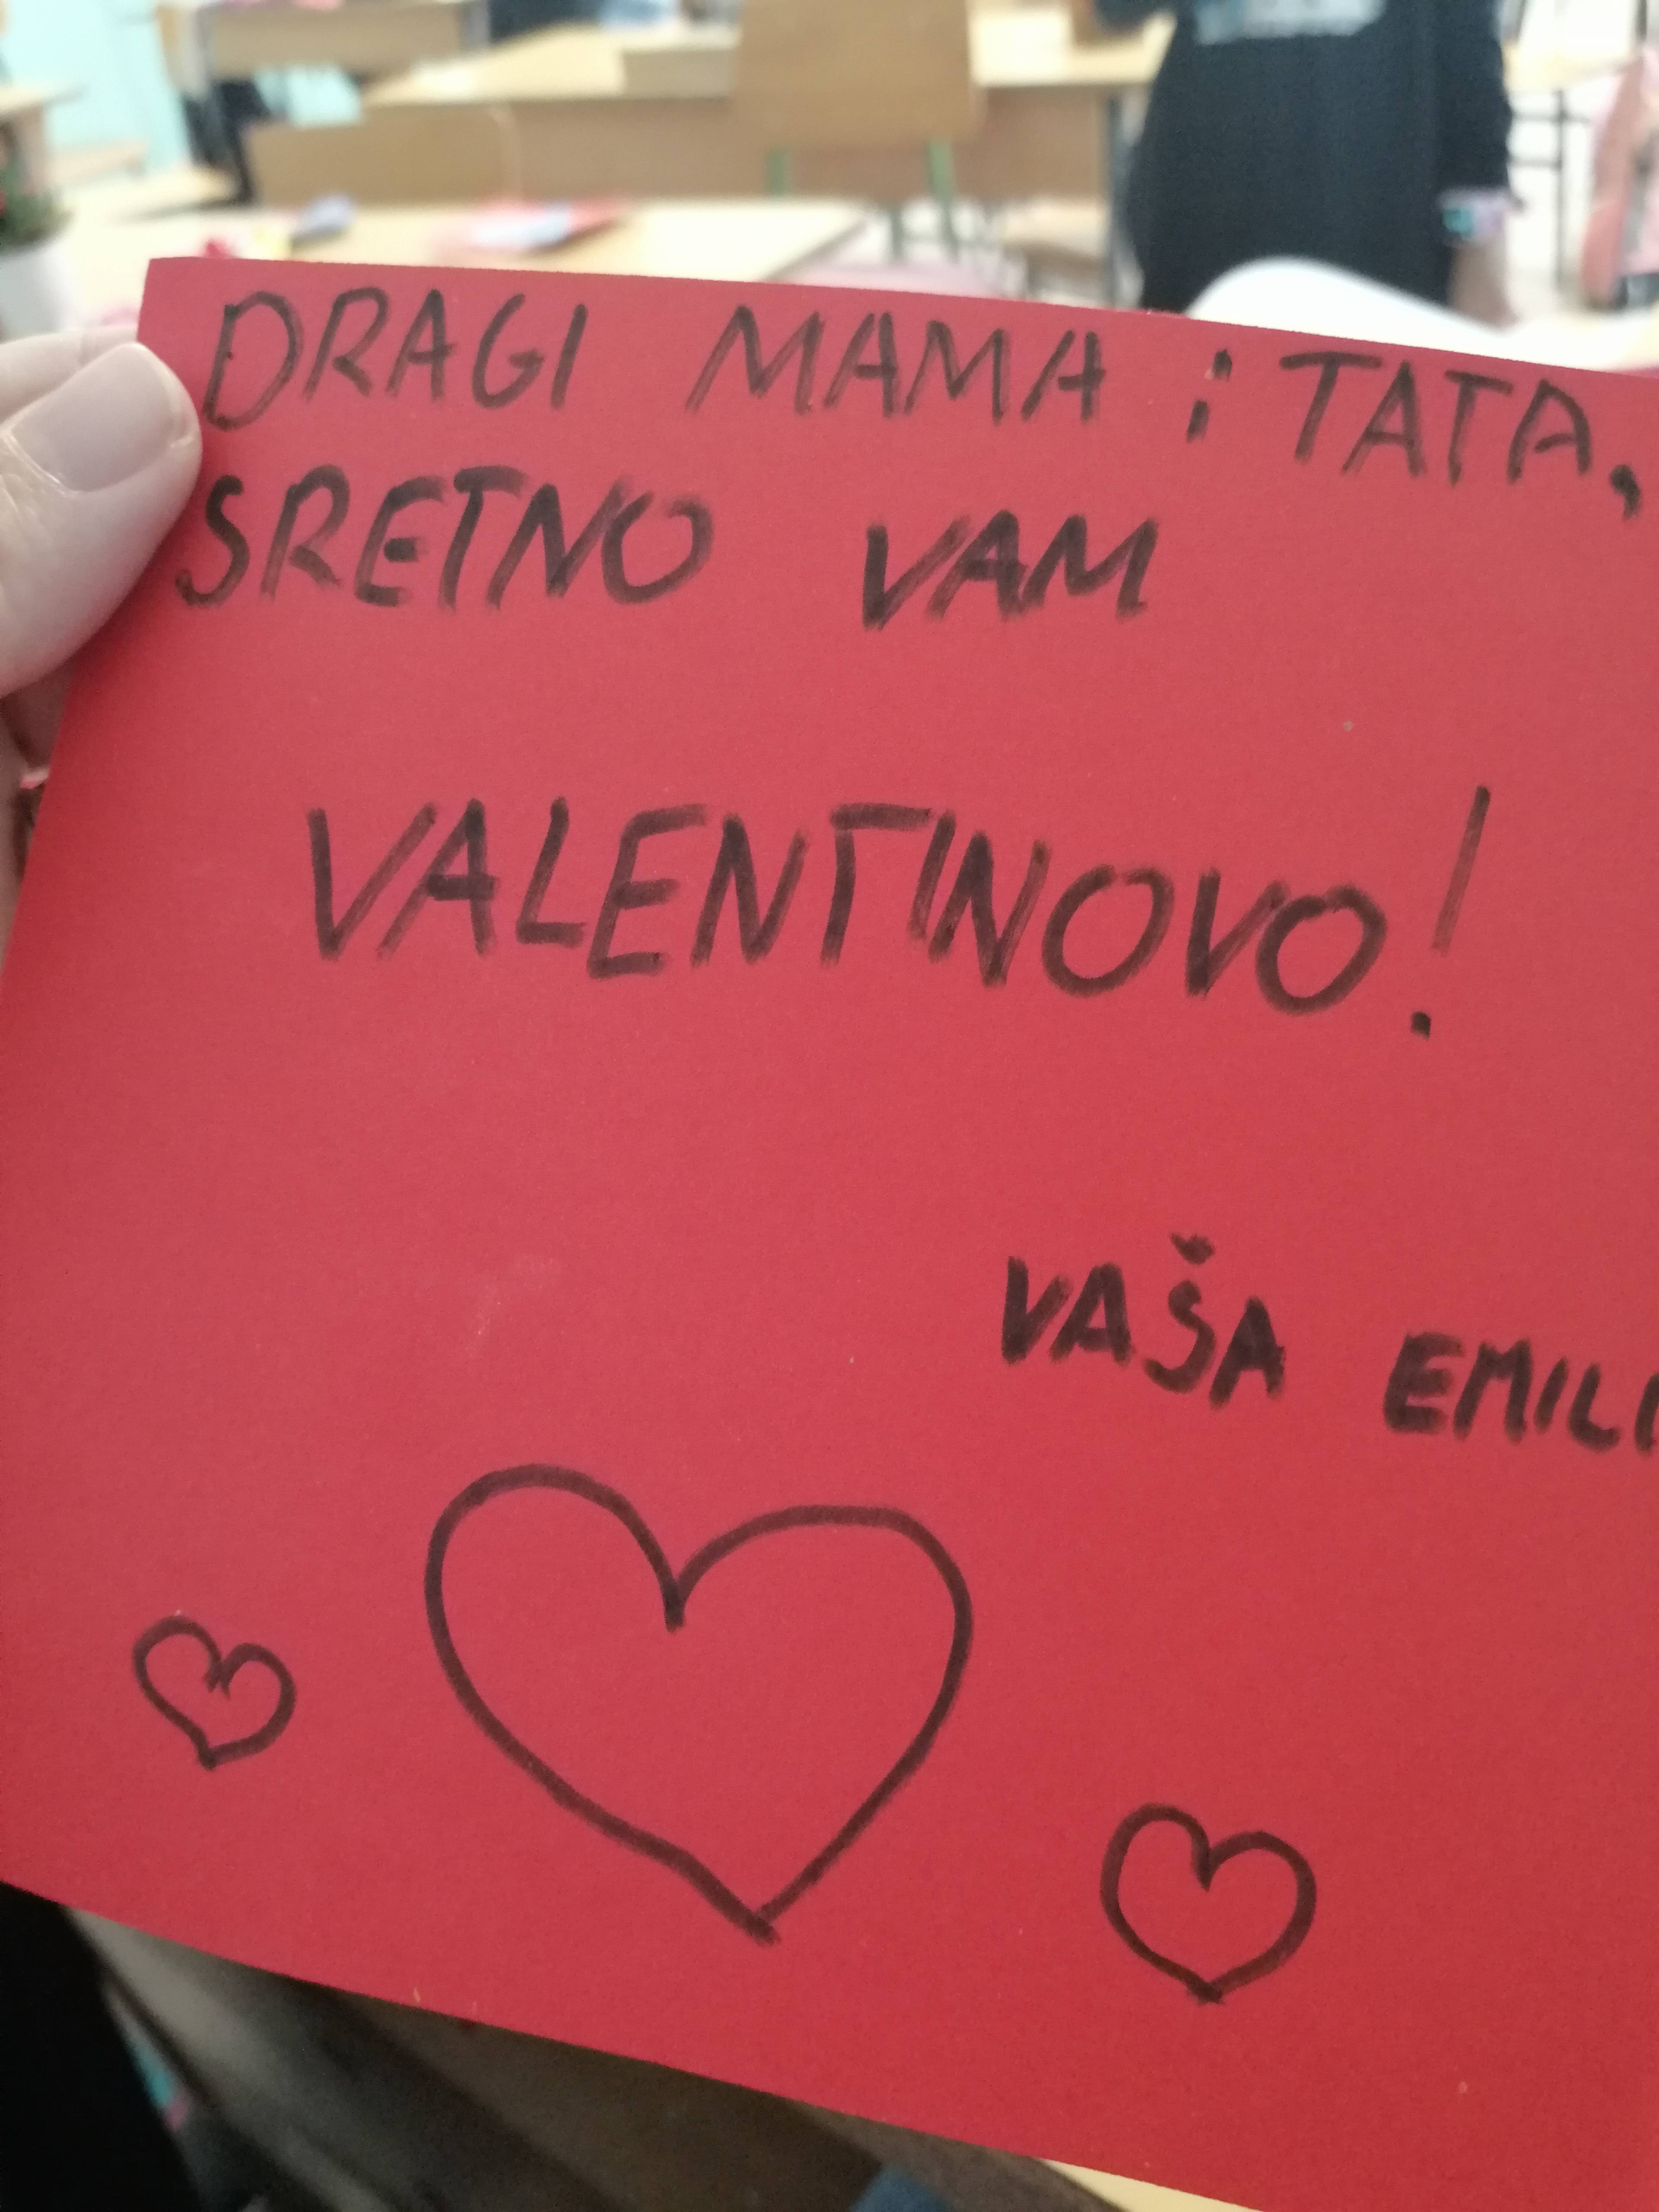 DRAGI MAMA i TATA,
SRETNO VAM
VALENTINOVO!
VAŠA EMILI